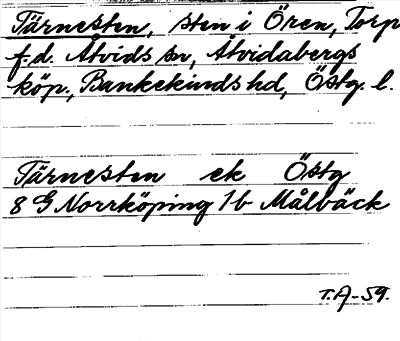 Tärnesten, sten i Ören, Torp
f.d. Åtvids sn, Åtvidabergs
köp., Bankekinds hd, Östg. l.
Tärnesten ek Östg
8 G Norrköping 1b Målbäck
T.A-59.